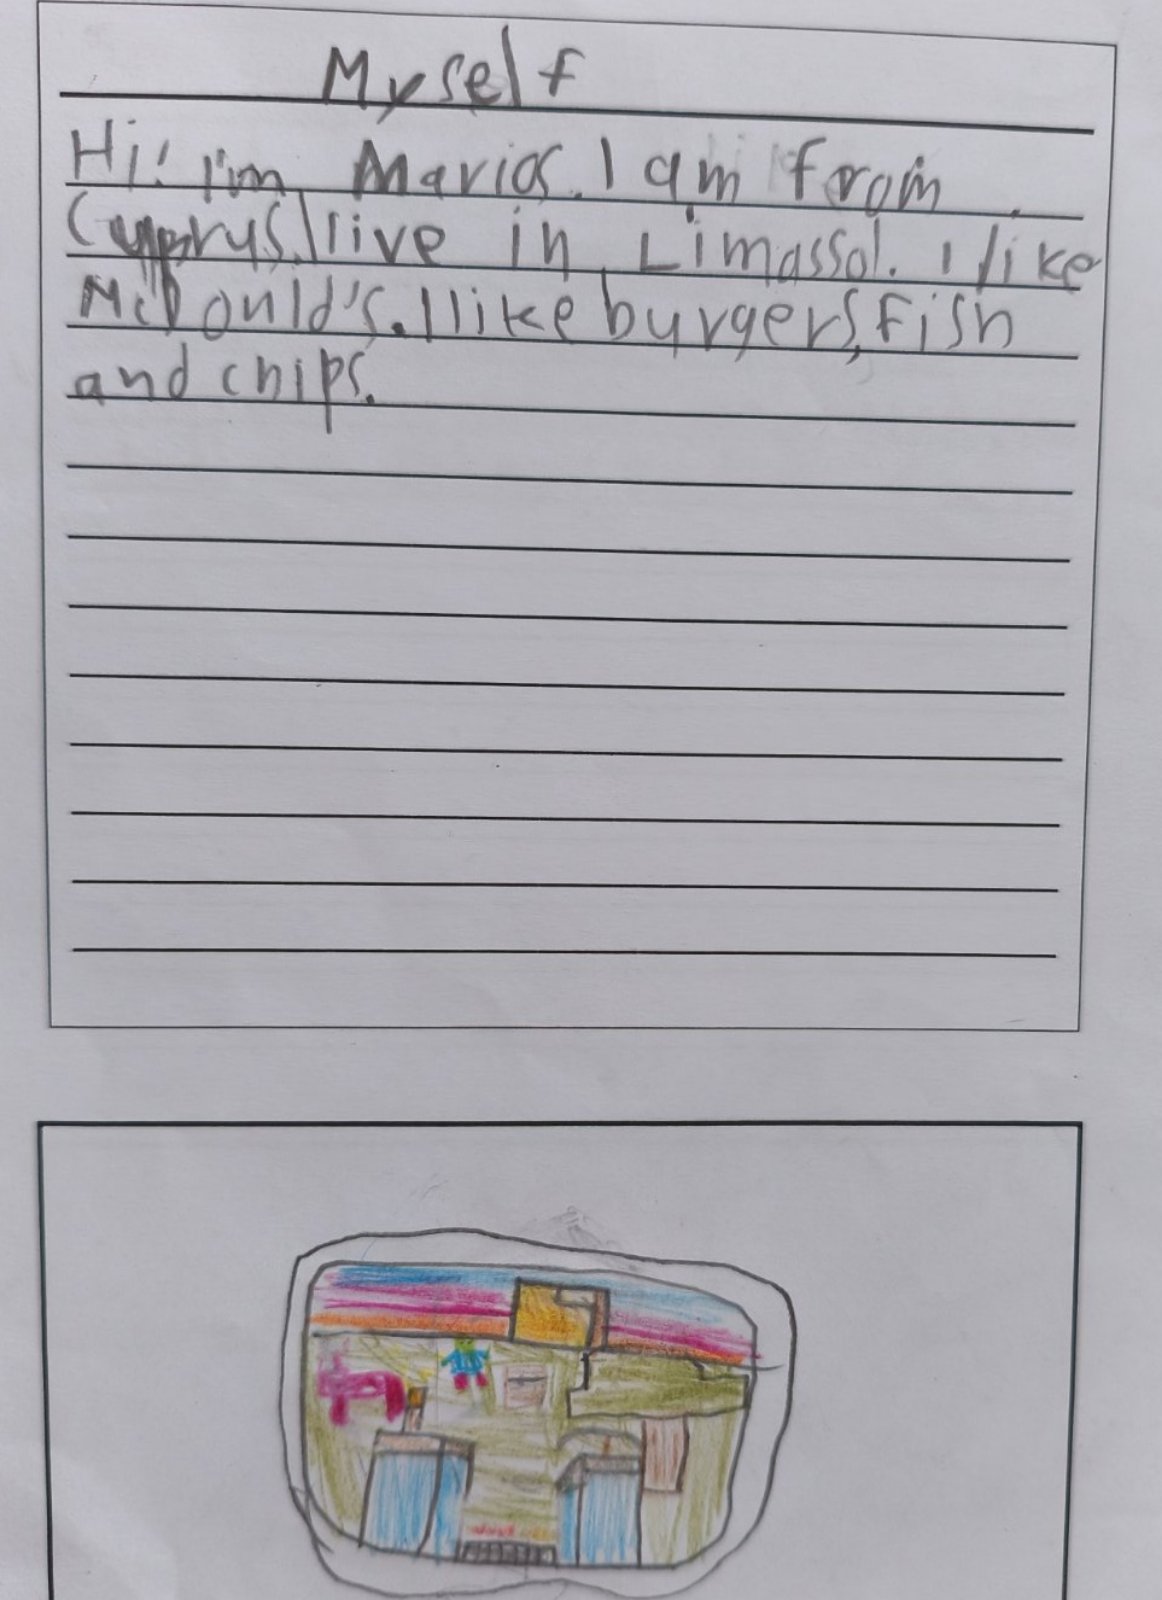 Myself
Hi! I'm Marios. I am from
Cyprus. I live in Limassol. I like
McDonuld's. I like burgers, fish
and chips.